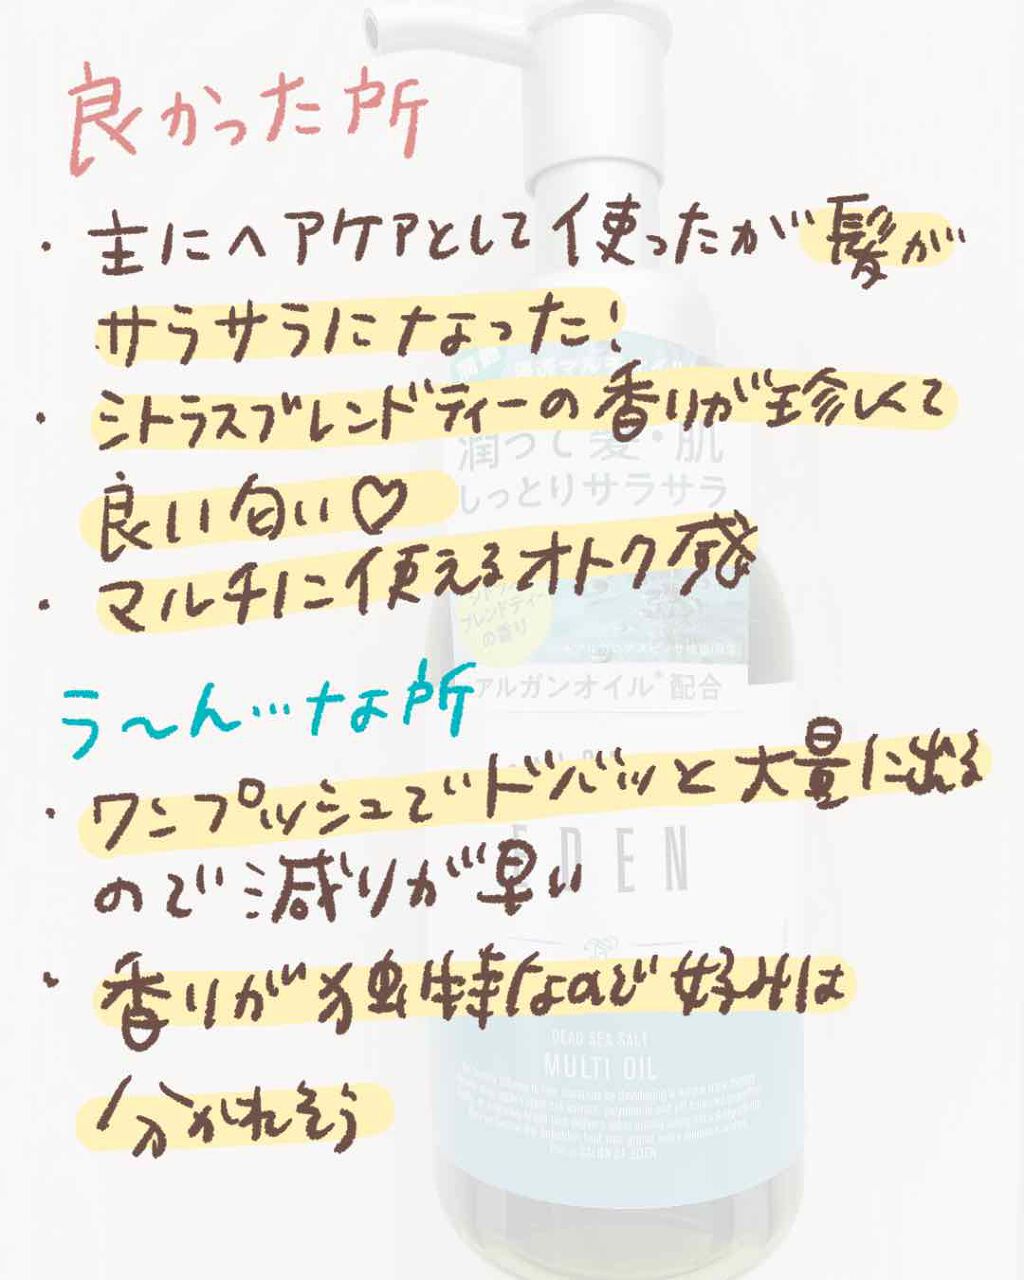 良かった所
・主にヘアケアとして使ったが髪が
サラサラになった!
・シトラスブレンドティーの香りが珍しくて
良い匂い♡
・マルチに使えるオトク感
潤って髪・肌
しっとりサラサラ
ブレンドティー
の香り
アルガンオイル*配合
う〜ん…な所
・ワンプッシュでドバッと大量に出る
ので減りが早い
EDEN
・香りが独特なので好みは
分かれそう
DEAD SEA SALT
MULTI OIL